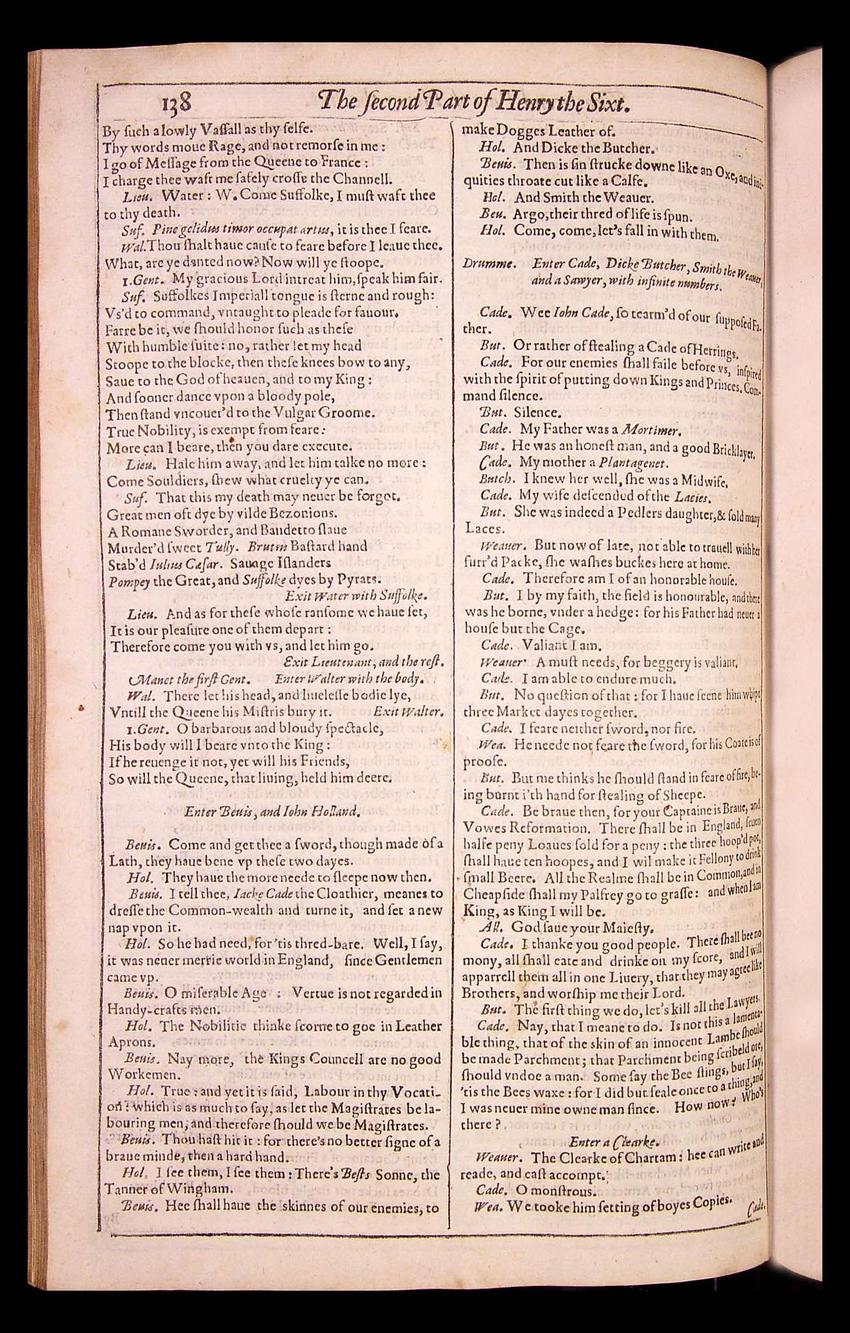 138 The ſecond Part of Henry the Sixt.
By ſuch a lowly Vaſſall as thy ſelfe.
Thy words moue Rage, and not remorſe in me :
I go of Meſſage from the Queene to France :
I charge thee waft me ſafely croſſe the Channell.
Lieu. Water : W. Come Suffolke, I muſt waft thee
to thy death.
Suf. Pine gelidus timor occupat artus, it is thee I feare.
Wal. Thou ſhalt haue cauſe to feare before I leaue thee.
What, are ye danted now? Now will ye ſtoope.
1.Gent. My gracious Lord intreat him, ſpeak him fair.
Suf. Suffolkes Imperiall tongue is ſterne and rough:
Vs'd to command, vntaught to pleade for fauour.
Farre be it, we ſhould honor ſuch as theſe
With humble ſuite: no, rather let my head
Stoope to the blocke, then theſe knees bow to any,
Saue to the God of heauen, and to my King :
And ſooner dance vpon a bloody pole,
Then ſtand vncouer'd to the Vulgar Groome.
True Nobility, is exempt from feare:
More can I beare, then you dare execute.
Lieu. Hale him away, and let him talke no more :
Come Souldiers, ſhew what cruelty ye can.
Suf. That this my death may neuer be forgot.
Great men oft dye by vilde Bezonions.
A Romane Sworder, and Bandetto ſlaue
Murder'd ſweet Tully. Brutus Baſtard hand
Stab'd Iulius Cæſar. Sauage Iſlanders
Pompey the Great, and Suffolke dyes by Pyrats.
Exit Water with Suffolke.
Lieu. And as for theſe whoſe ranſome we haue ſet,
It is our pleaſure one of them depart :
Therefore come you with vs, and let him go.
Exit Lieutenant, and the reſt.
Manet the firſt Gent. Enter Walter with the body.
Wal. There let his head, and liueleſſe bodie lye,
Vntill the Queene his Miſtris bury it. Exit Walter.
1.Gent. O barbarous and bloudy ſpectacle,
His body will I beare vnto the King :
If he reuenge it not, yet will his Friends,
So will the Queene, that liuing, held him deere.
Enter Beuis, and Iohn Holland.
Beuis. Come and get thee a ſword, though made of a
Lath, they haue bene vp theſe two dayes.
Hol. They haue the more neede to ſleepe now then.
Beuis. I tell thee, Iacke Cade the Cloathier, meanes to
dreſſe the Common-wealth and turne it, and ſet a new
nap vpon it.
Hol. So he had need, for 'tis thred-bare. Well, I ſay,
it was neuer merrie world in England, ſince Gentlemen
came vp.
Beuis. O miſerable Age : Vertue is not regarded in
Handy-crafts men.
Hol. The Nobilitie thinke ſcorne to goe in Leather
Aprons.
Beuis. Nay more, the Kings Councell are no good
Workemen.
Hol. True : and yet it is ſaid, Labour in thy Vocati-
on : which is as much to ſay, as let the Magiſtrates be la-
bouring men, and therefore ſhould we be Magiſtrates.
Beuis. Thou haſt hit it : for there's no better ſigne of a
braue minde, then a hard hand.
Hol. I ſee them, I ſee them : There's Beſts Sonne, the
Tanner of Wingham.
Beuis. Hee ſhall haue the skinnes of our enemies, to
make Dogges Leather of.
Hol. And Dicke the Butcher.
Beuis. Then is ſin ſtrucke downe like an Oxe, and ini-
quities throate cut like a Calfe.
Hol. And Smith the Weauer.
Beu. Argo, their thred of life is ſpun.
Hol. Come, come, let's fall in with them.
Drumme. Enter Cade, Dicke Butcher, Smith the Weauer,
and a Sawyer, with infinite numbers.
Cade. Wee Iohn Cade, ſo tearm'd of our ſuppoſed Fa-
ther.
But. Or rather of ſtealing a Cade of Herrings.
Cade. For our enemies ſhall faile before vs, inſpired
with the ſpirit of putting down Kings and Princes. Com-
mand ſilence.
But. Silence.
Cade. My Father was a Mortimer.
But. He was an honeſt man, and a good Bricklayer.
Cade. My mother a Plantagenet.
Butch. I knew her well, ſhe was a Midwife.
Cade. My wife deſcended of the Lacies.
But. She was indeed a Pedlers daughter, & ſold many
Laces.
Weauer. But now of late, not able to trauell with her
furr'd Packe, ſhe waſhes buckes here at home.
Cade. Therefore am I of an honorable houſe.
But. I by my faith, the field is honourable, and there
was he borne, vnder a hedge: for his Father had neuer a
houſe but the Cage.
Cade. Valiant I am.
Weauer. A muſt needs, for beggery is valiant.
Cade. I am able to endure much.
But. No queſtion of that : for I haue ſeene him whipt
three Market dayes together.
Cade. I feare neither ſword, nor fire.
Wea. He neede not feare the ſword, for his Coate is of
proofe.
But. But me thinks he ſhould ſtand in feare of fire, be-
ing burnt i'th hand for ſtealing of Sheepe.
Cade. Be braue then, for your Captaine is Braue, and
Vowes Reformation. There ſhall be in England, ſeuen
halfe peny Loaues ſold for a peny : the three hoop'd pot,
ſhall haue ten hoopes, and I wil make it Fellony to drink
ſmall Beere. All the Realme ſhall be in Common, and in
Cheapſide ſhall my Palfrey go to graſſe : and when I am
King, as King I will be.
All. God ſaue your Maieſty.
Cade. I thanke you good people. There ſhall bee no
mony, all ſhall eate and drinke on my ſcore, and I will
apparrell them all in one Liuery, that they may agree like
Brothers, and worſhip me their Lord.
But. The firſt thing we do, let's kill all the Lawyers.
Cade. Nay, that I meane to do. Is not this a lamenta-
ble thing, that of the skin of an innocent Lambe ſhould
be made Parchment; that Parchment being ſcribeld ore,
ſhould vndoe a man. Some ſay the Bee ſtings, but I ſay,
'tis the Bees waxe : for I did but ſeale once to a thing, and
I was neuer mine owne man ſince. How now? Who's
there ?
Enter a Clearke.
Weauer. The Clearke of Chartam : hee can write and
reade, and caſt accompt.
Cade. O monſtrous.
Wea. We tooke him ſetting of boyes Copies.
Cade.